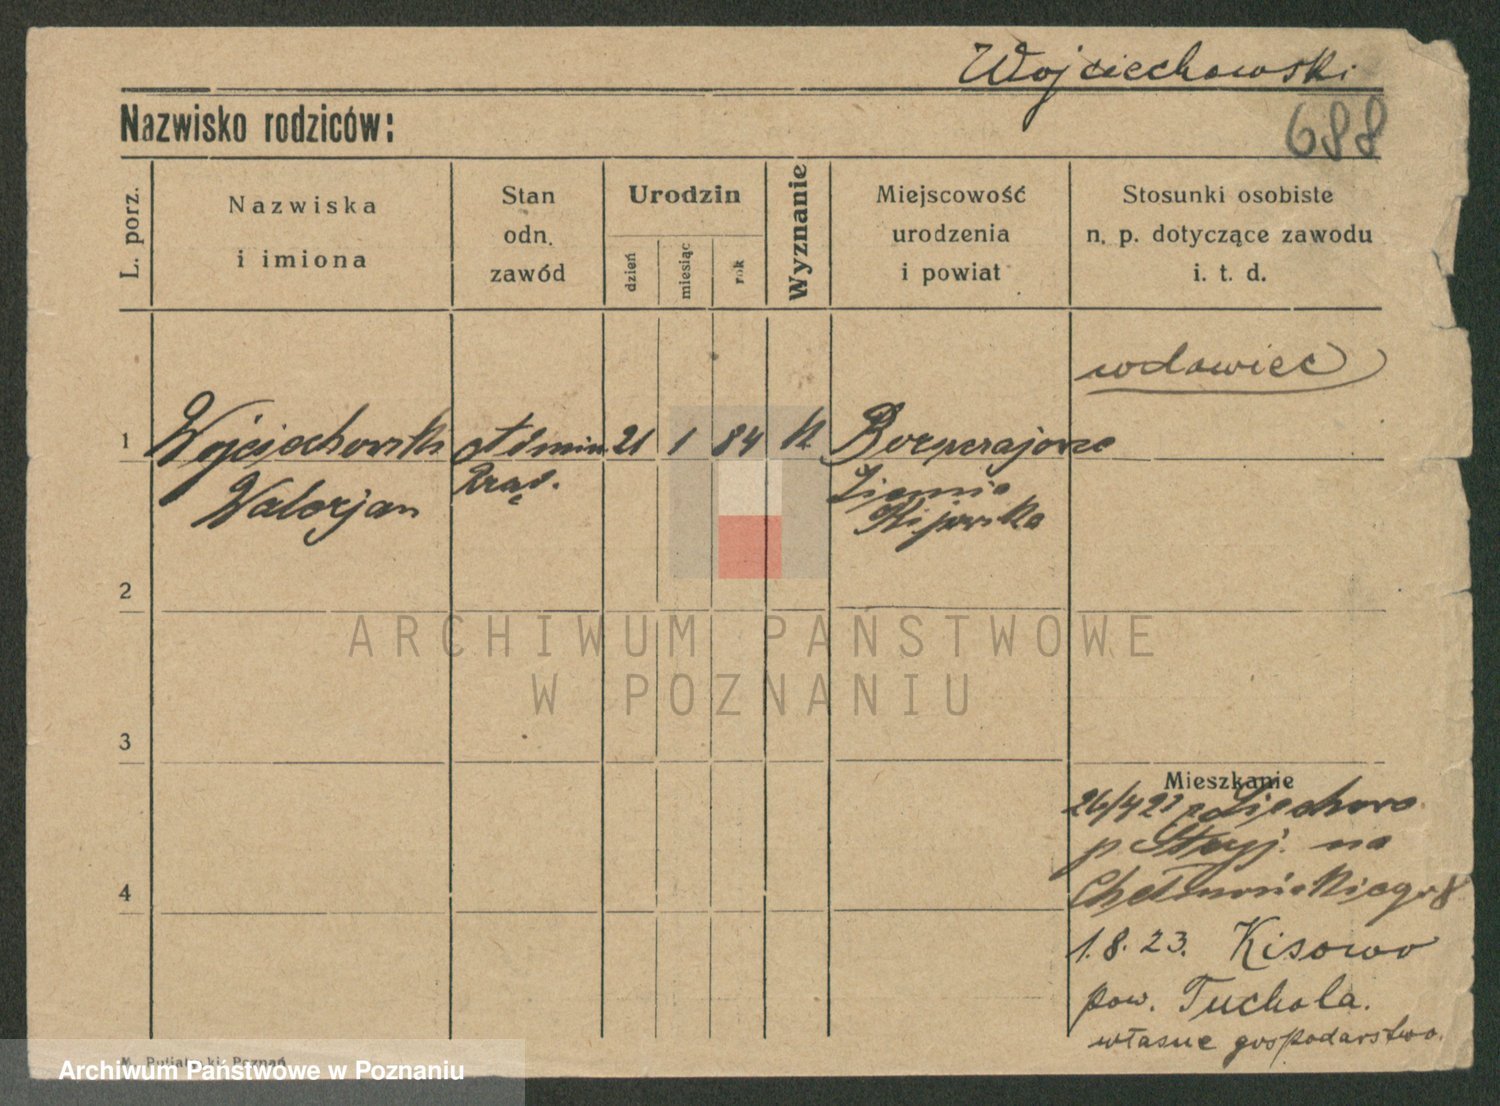 Wojciechowski
Nazwisko rodziców:
688
L. porz.
Nazwiska
i imiona
Stan
odn.
zawód
Urodzin
dzień
miesiąc
rok
Wyznanie
Miejscowość
urodzenia
i powiat
Stosunki osobiste
n. p. dotyczące zawodu
i. t. d.
wdowiec
1 Wojciechowski Admin. 21 1 84 k
Walerjan
Ziemia
Kijowska
2
ARCHIWUM PAŃSTWOWE
W POZNANIU
3
Mieszkanie
p. Stryj. na
4
Chełmońskiego 8
1.8.23. Kisowo
pow. Tuchola.
własne gospodarstwo.
Poznań
Archiwum Państwowe w Poznaniu